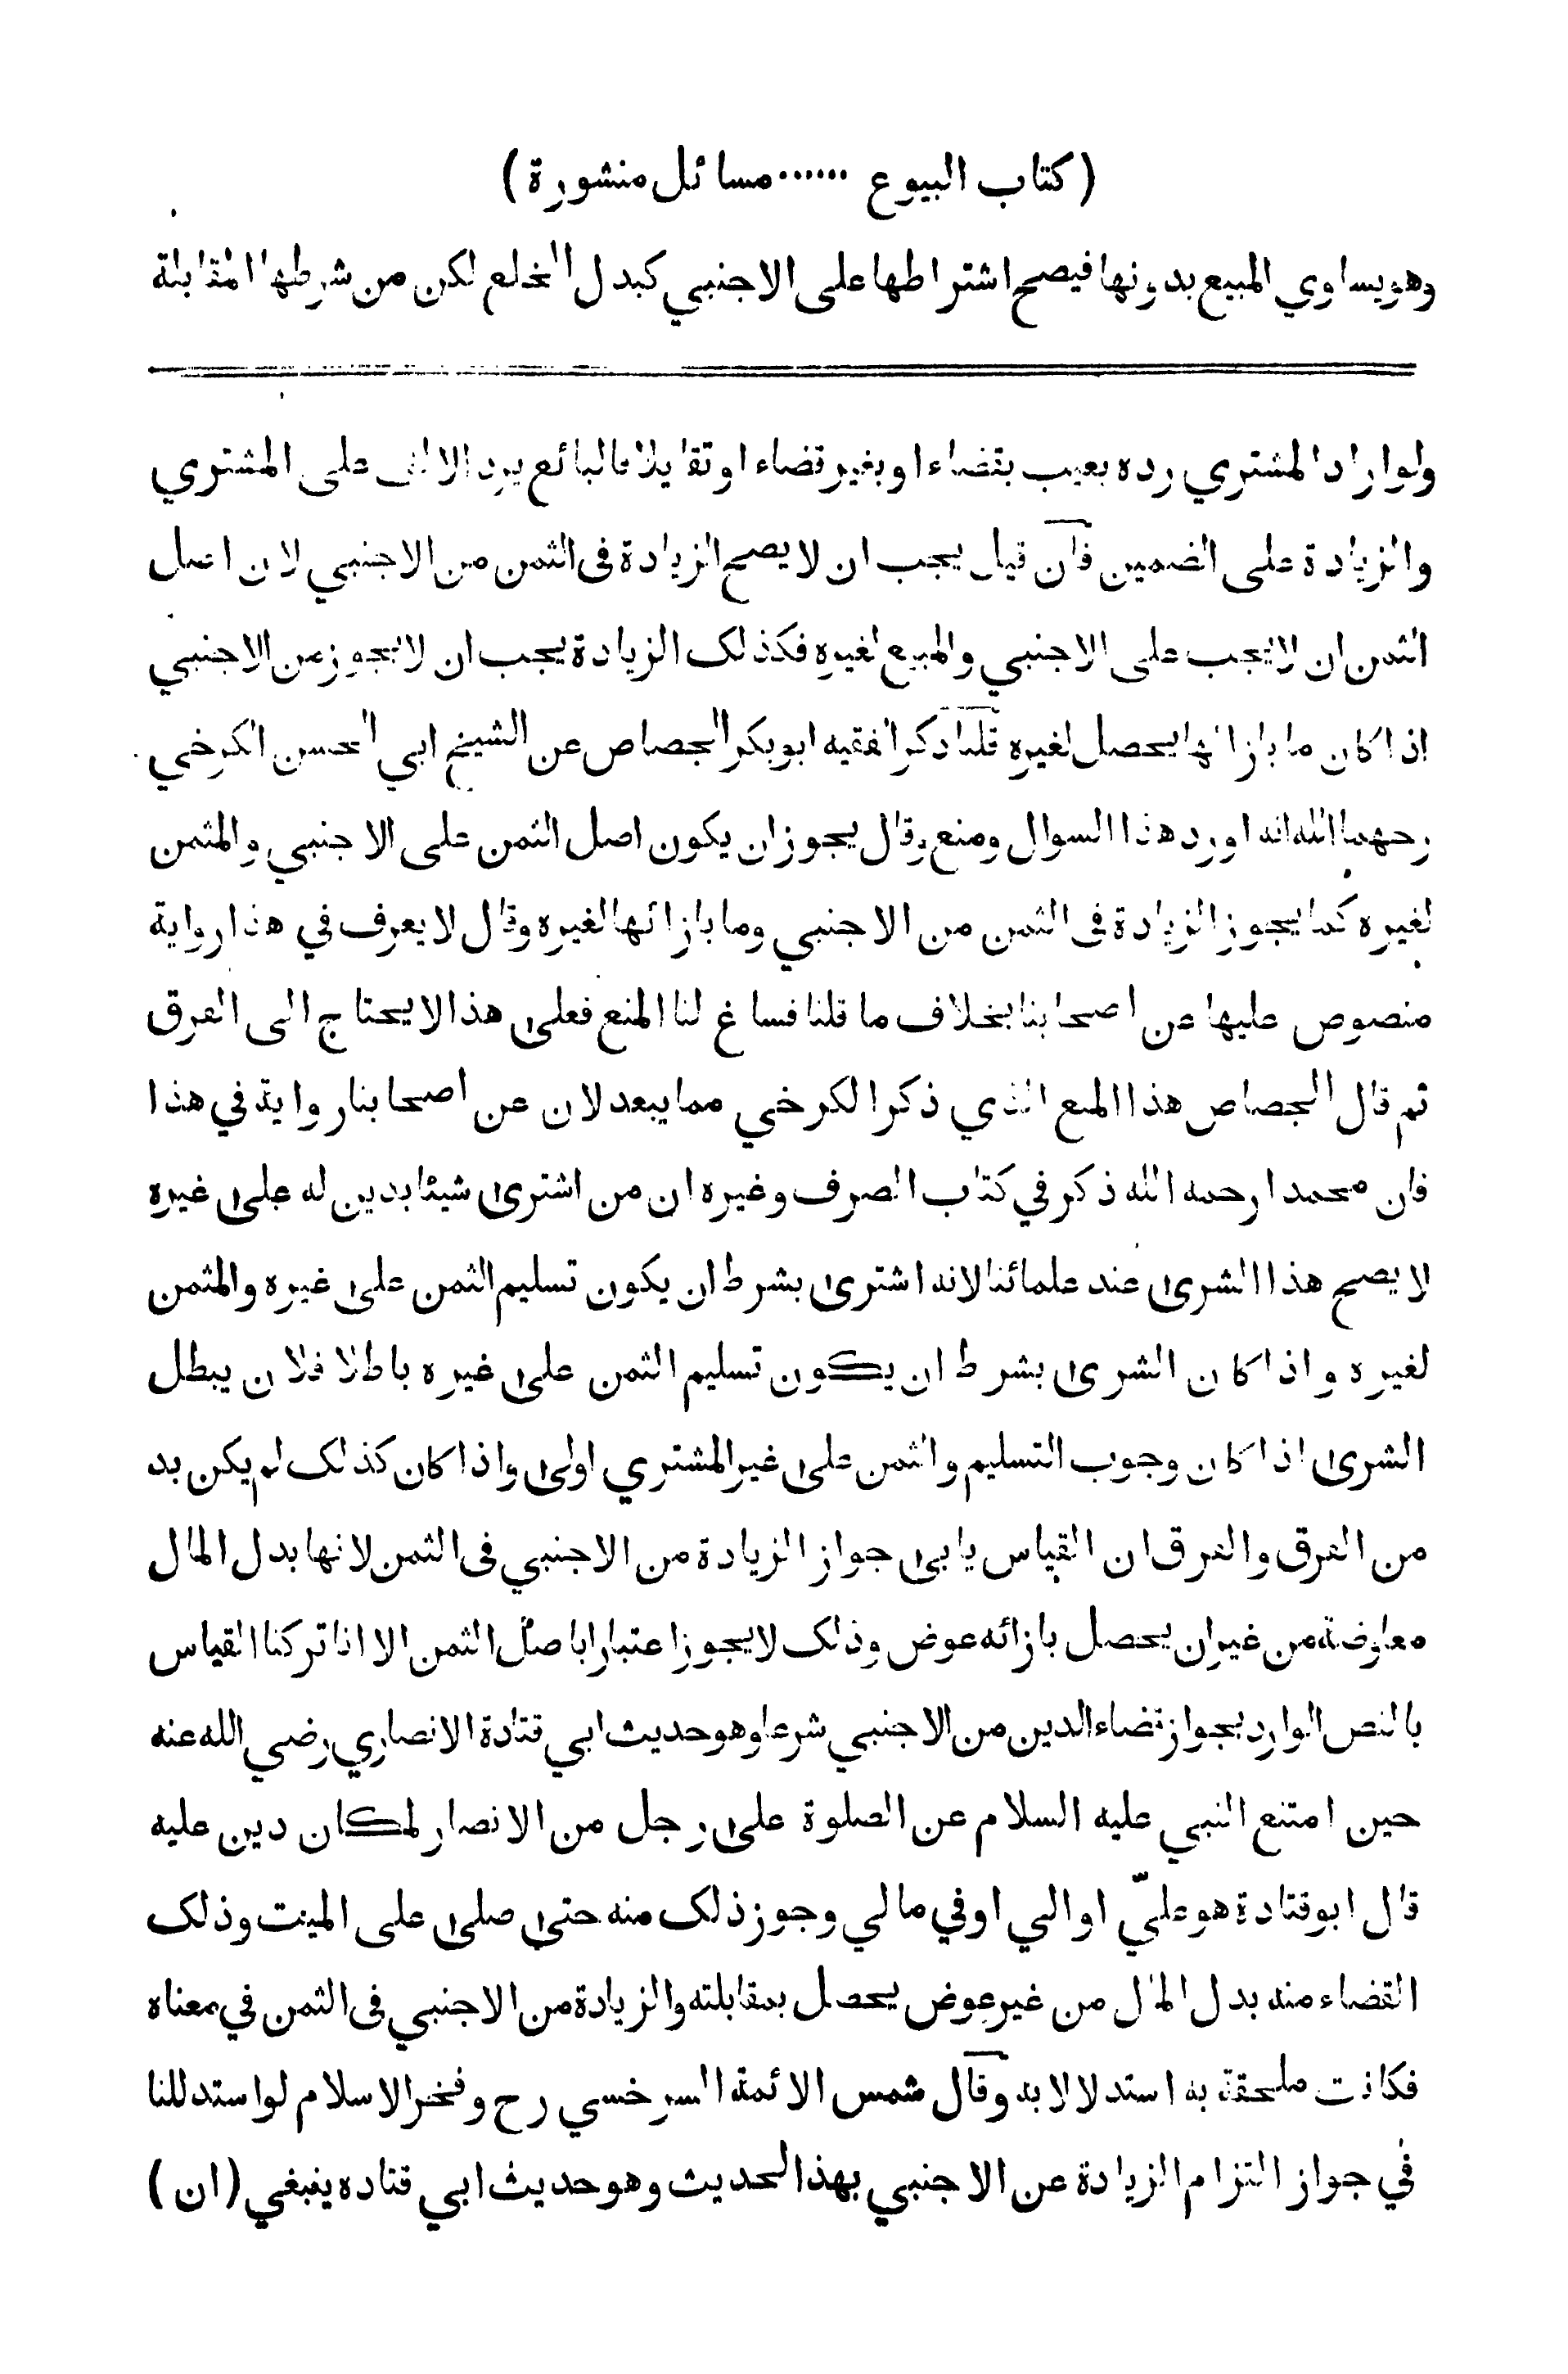 (كتاب البيوع ······ مسائل منشورة)
وهويساوي المبيع بدونها فيصح اشتراطها على الاجنبي كبدل الخلع لكن من شرطها المقابلة
ولواراد المشتري رده بعيب بقضاء اوبغير قضاء اوتقايلا فالبائع يرد الالف على المشتري
والزيادة على الضمين فان قيل يجب ان لا يصح الزيادة فى الثمن من الاجنبي لان اصل
الثمن ان لا يجب على الاجنبي والمبيع لغيره فكذلك الزيادة يجب ان لا يجوز من الاجنبي
اذا كان ما بازائها يحصل لغيره قلنا ذكر الفقيه ابوبكر الجصاص عن الشيخ ابي الحسن الكرخي
رحهما الله انه اورد هذا السوال ومنع وقال يجوز ان يكون اصل الثمن على الاجنبي والمثمن
لغيره كما يجوز الزيادة فى الثمن من الاجنبي وما بازائها لغيره وقال لا يعرف في هذا رواية
منصوص عليها عن اصحابنا بخلاف ما قلنا فساغ لنا المنع فعلى هذا لا يحتاج الى الفرق
ثم قال الجصاص هذا المنع الذي ذكر الكرخي مما يبعد لان عن اصحابنا رواية في هذا
فان محمدا رحمه الله ذكر في كتاب الصرف وغيره ان من اشترى شيئا بدين له على غيره
لا يصح هذا الشرى عند علمائنا لانه اشترى بشرط ان يكون تسليم الثمن على غيره والمثمن
لغيره واذا كان الشرى بشرط ان يكون تسليم الثمن على غيره باطلا فلان يبطل
الشرى اذا كان وجوب التسليم والثمن على غير المشتري اولى واذا كان كذلك لم يكن بد
من الفرق والفرق ان القياس يابى جواز الزيادة من الاجنبي فى الثمن لانها بدل المال
معاوضة من غيران يحصل بازائه عوض وذلك لا يجوز اعتبارا باصل الثمن الا انا تركنا القياس
بالنص الوارد بجواز قضاء الدين من الاجنبي شرعا وهو حديث ابي قتادة الانصاري رضي الله عنه
حين امتنع النبي عليه السلام عن الصلوة على رجل من الانصار لمكان دين عليه
قال ابوقتادة هو عليّ او الي اوفي مالي وجوز ذلك منه حتى صلى على الميت وذلك
القضاء منه بدل المال من غير عوض يحصل بمقابلته والزيادة من الاجنبي فى الثمن في معناه
فكانت ملحقة به استدلالا به وقال شمس الائمة السرخسي رح وفخر الاسلام لو استدللنا
في جواز التزام الزيادة عن الاجنبي بهذا الحديث وهو حديث ابي قتاده ينبغي (ان)